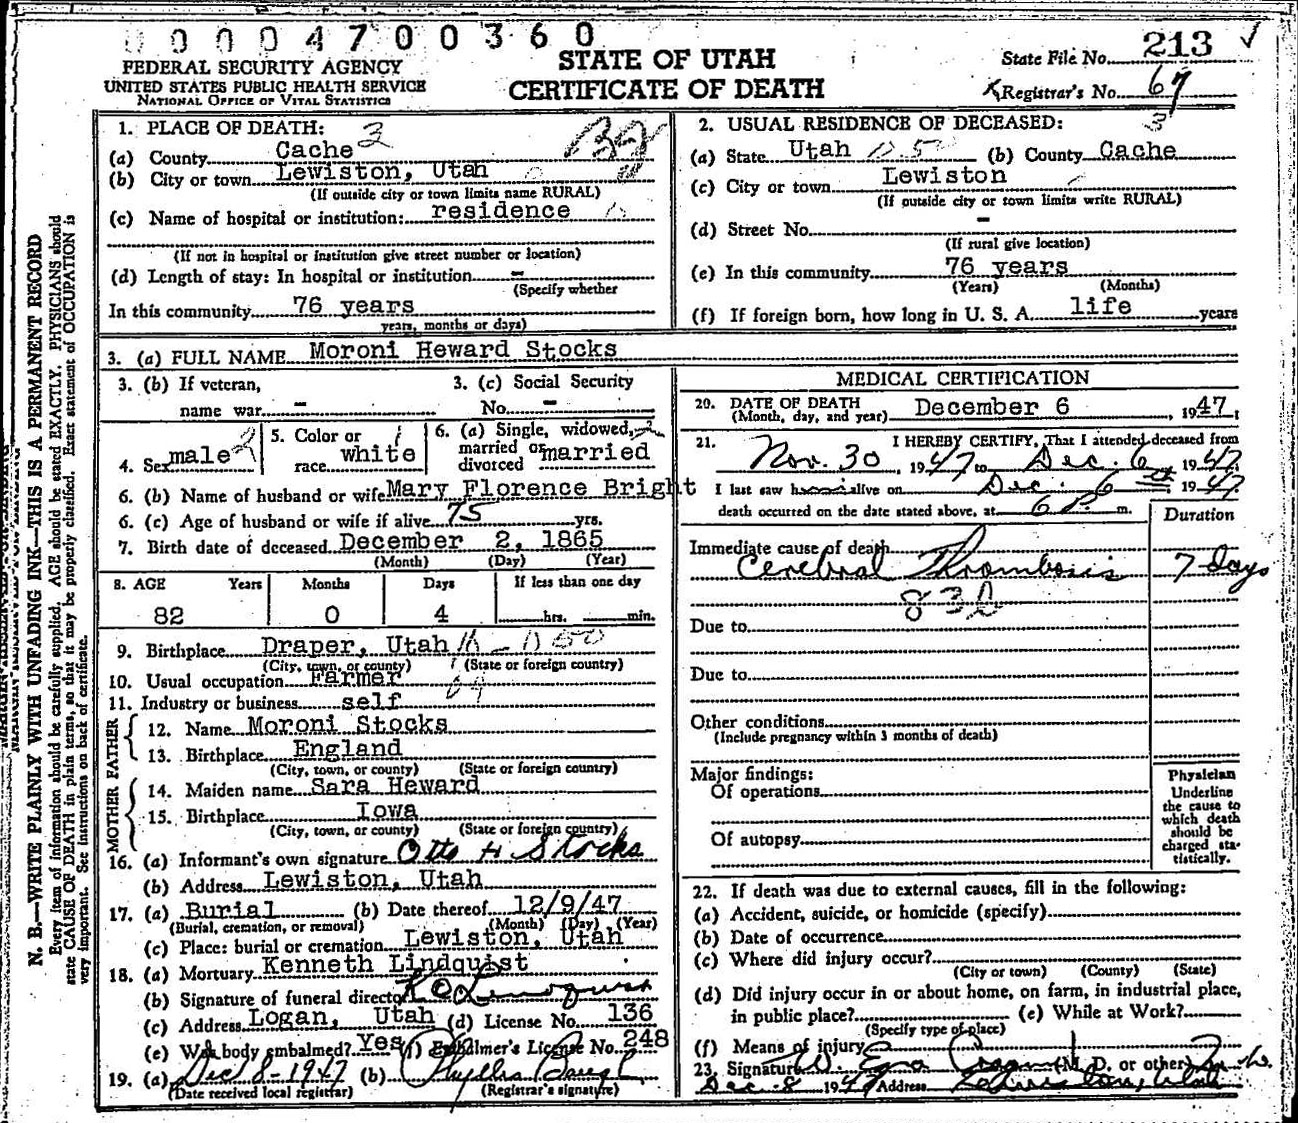 00004700360
FEDERAL SECURITY AGENCY
UNITED STATES PUBLIC HEALTH SERVICE
NATIONAL OFFICE OF VITAL STATISTICS
STATE OF UTAH
CERTIFICATE OF DEATH
State File No. 213 ✓
Registrar's No. 67
N. B.—WRITE PLAINLY WITH UNFADING INK—THIS IS A PERMANENT RECORD
Every item of information should be carefully supplied. AGE should be stated EXACTLY. PHYSICIANS should
state CAUSE OF DEATH in plain terms, so that it may be properly classified. Exact statement of OCCUPATION is
very important. See instructions on back of certificate.
1. PLACE OF DEATH: 3
(a) County Cache
(b) City or town Lewiston, Utah
(If outside city or town limits name RURAL)
(c) Name of hospital or institution: residence
(If not in hospital or institution give street number or location)
(d) Length of stay: In hospital or institution -
(Specify whether
In this community 76 years
years, months or days)
2. USUAL RESIDENCE OF DECEASED: 3
(a) State Utah (b) County Cache
(c) City or town Lewiston
(If outside city or town limits write RURAL)
(d) Street No. -
(If rural give location)
(e) In this community 76 years
(Years) (Months)
(f) If foreign born, how long in U. S. A. life years
3. (a) FULL NAME Moroni Heward Stocks
3. (b) If veteran, name war -
3. (c) Social Security No. -
4. Sex male 2
5. Color or race white 1
6. (a) Single, widowed, married or divorced married
6. (b) Name of husband or wife Mary Florence Bright
6. (c) Age of husband or wife if alive 75 yrs.
7. Birth date of deceased December 2, 1865
(Month) (Day) (Year)
8. AGE Years Months Days If less than one day
82 0 4 hrs. min.
9. Birthplace Draper, Utah
(City, town, or county) (State or foreign country)
10. Usual occupation Farmer
11. Industry or business self
FATHER
12. Name Moroni Stocks
13. Birthplace England
(City, town, or county) (State or foreign country)
MOTHER
14. Maiden name Sara Heward
15. Birthplace Iowa
(City, town, or county) (State or foreign country)
16. (a) Informant's own signature Otto H Stocks
(b) Address Lewiston, Utah
17. (a) Burial (b) Date thereof 12/9/47
(Burial, cremation, or removal) (Month) (Day) (Year)
(c) Place: burial or cremation Lewiston, Utah
18. (a) Mortuary Kenneth Lindquist
(b) Signature of funeral director K O Lindquist
(c) Address Logan, Utah (d) License No. 136
(e) Was body embalmed? Yes (f) Embalmer's License No. 248
19. (a) Dec 8-1947 (b) Phyllis
(Date received local registrar) (Registrar's signature)
MEDICAL CERTIFICATION
20. DATE OF DEATH
(Month, day, and year) December 6, 1947.
21. I HEREBY CERTIFY, That I attended deceased from
Nov. 30, 1947 to Dec. 6, 1947.
I last saw him alive on Dec. 6th, 1947.
death occurred on the date stated above, at 6 P. m.
Duration
Immediate cause of death
Cerebral Thrombosis 7 days
Due to
Due to
Other conditions
(Include pregnancy within 3 months of death)
Major findings:
Of operations
Of autopsy
Physician
Underline
the cause to
which death
should be
charged sta-
tistically.
22. If death was due to external causes, fill in the following:
(a) Accident, suicide, or homicide (specify)
(b) Date of occurrence
(c) Where did injury occur?
(City or town) (County) (State)
(d) Did injury occur in or about home, on farm, in industrial place,
in public place? (e) While at Work?
(Specify type of place)
(f) Means of injury
23. Signature W. Ezra (M. D. or other)
Dec. 8 1947 Address Lewiston, Utah